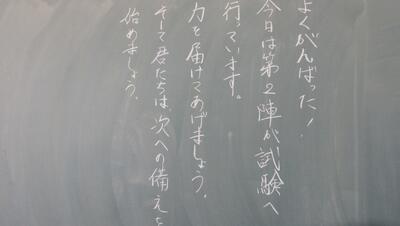 よくがんばった!
今日は第2陣が試験へ
行っています。
力を届けてあげましょう。
そして君たちは、次への備えを
始めましょう。